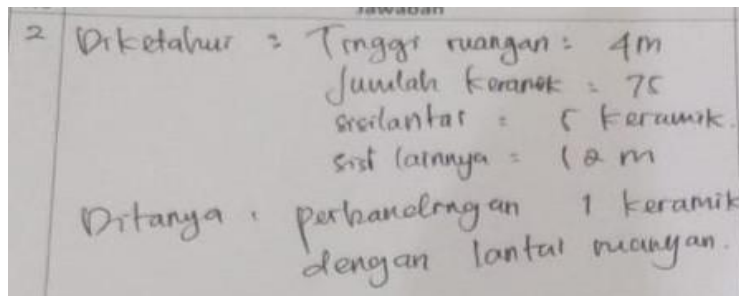 Jawaban
2 Diketahui : Tinggi ruangan : 4m
Jumlah Keramik : 75
sisi lantai : 5 keramik.
sisi lainnya = 12 m
Ditanya : perbandingan 1 keramik
dengan lantai ruangan.